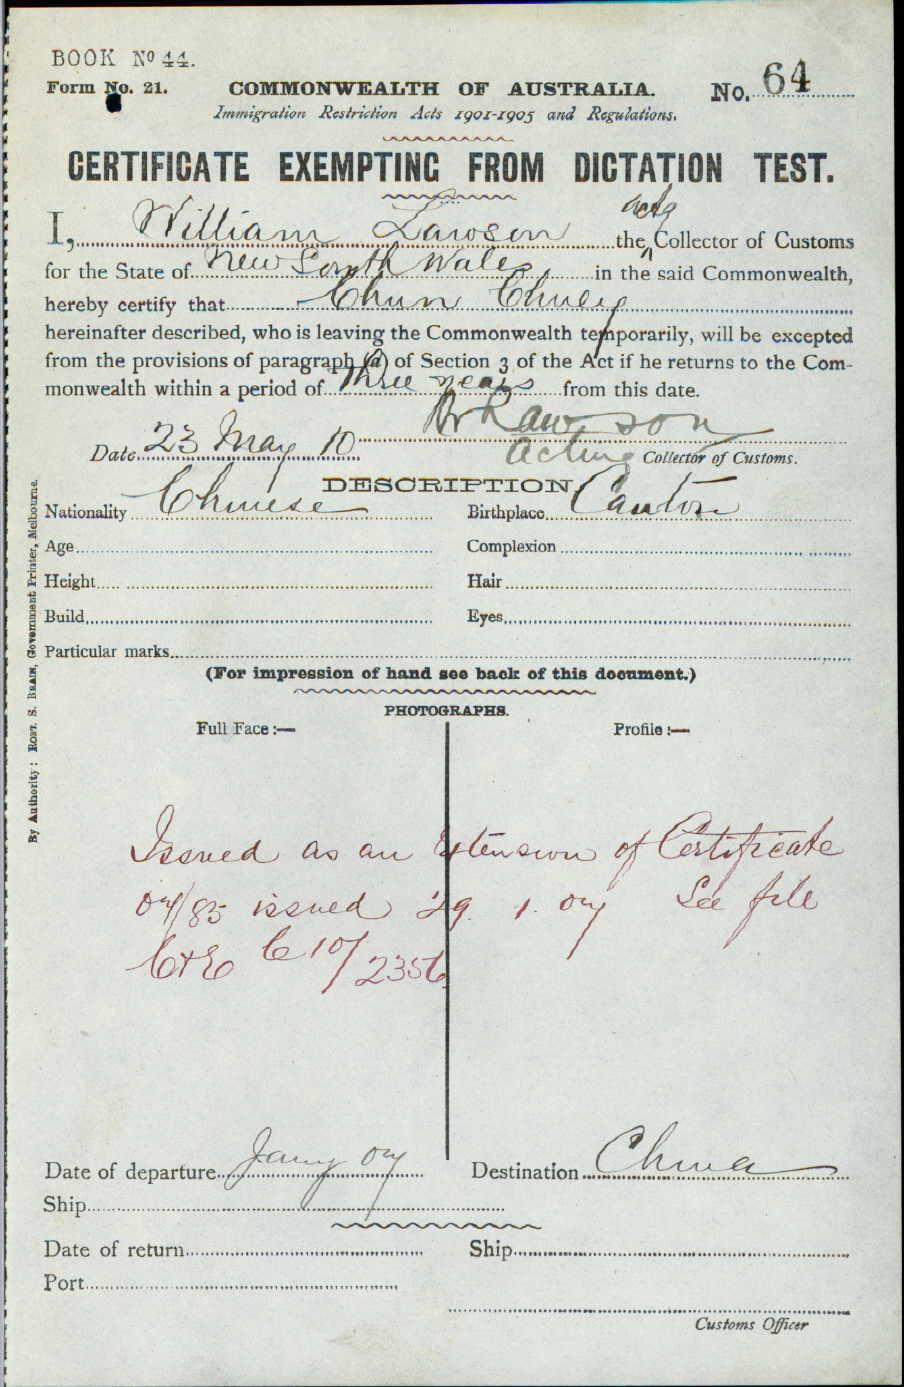 BOOK No 44.
Form No. 21.
COMMONWEALTH OF AUSTRALIA.
No. 64
Immigration Restriction Acts 1901-1905 and Regulations.
CERTIFICATE EXEMPTING FROM DICTATION TEST.
I, William Lawson the actg Collector of Customs
for the State of New South Wales in the said Commonwealth,
hereby certify that Chun Chuey
hereinafter described, who is leaving the Commonwealth temporarily, will be excepted
from the provisions of paragraph (a) of Section 3 of the Act if he returns to the Com-
monwealth within a period of Three years from this date.
Date 23 May 10
Acting Collector of Customs.
DESCRIPTION.
Nationality Chinese Birthplace Canton
Age Complexion
Height Hair
Build Eyes
Particular marks
(For impression of hand see back of this document.)
PHOTOGRAPHS.
Full Face:— Profile:—
Issued as an Extension of Certificate
07/85 issued 29. 1. 07 See file
C+E C 10/2356
Date of departure Jany 07 Destination China
Ship
Date of return Ship
Port
Customs Officer
By Authority: ROBT. S. BRAIN, Government Printer, Melbourne.